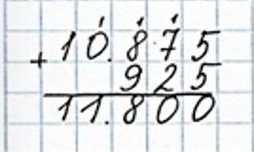 + 10.875
925
11.800